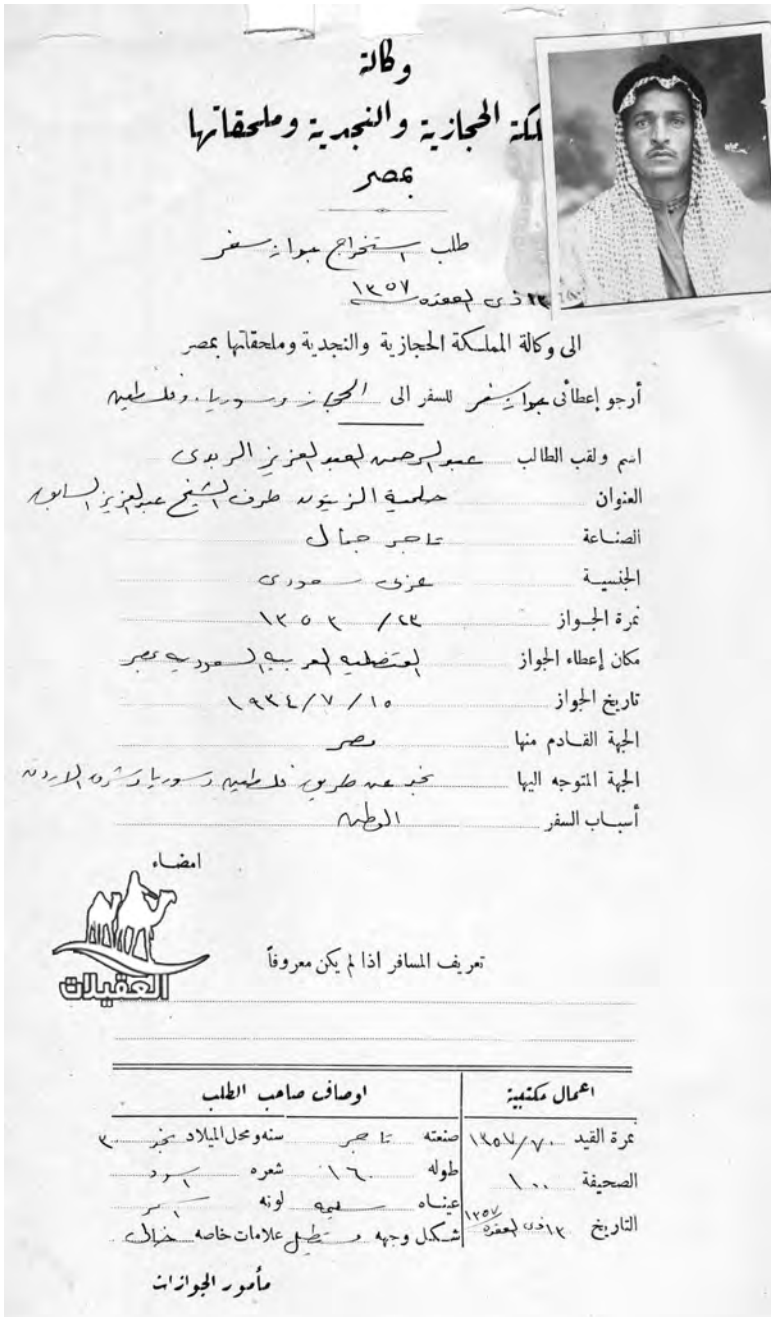 وكالة
لكة الحجازية والنجدية وملحقاتها
بمصر
طلب استخراج جواز سفر
١٣ ذى القعده ١٣٥٧
الى وكالة المملكة الحجازية والنجدية وملحقاتها بمصر
أرجو إعطائى جواز سفر للسفر الى الحجاز وسوريا وفلسطين
اسم ولقب الطالب عبدالرحمن العبدالعزيز الربدى
العنوان حلمية الزيتون طرف الشيخ عبدالعزيز السابق
الصناعة تاجر جمال
الجنسية عربى سعودى
نمرة الجواز ٢٣/ ١٣٥٣
مكان إعطاء الجواز القنصلية العربية السعودية بمصر
تاريخ الجواز ١٥/٧/١٩٣٤
الجهة القادم منها مصر
الجهة المتوجه اليها نجد عن طريق فلسطين وسوريا وشرق الاردن
أسباب السفر الوطن
امضاء
العقيلات
تعريف المسافر اذا لم يكن معروفاً
اعمال مكتبية
اوصاف صاحب الطلب
نمرة القيد ٧٠/١٣٥٧
صنعته تاجر سنه ومحل الميلاد نجد ٣٠
الصحيفة ١٠٠
طوله ١٦٠ شعره اسود
عيناه سليمه لونه اسمر
التاريخ ١٣ ذى القعده ١٣٥٧
شكل وجهه مستطيل علامات خاصه
مأمور الجوازات